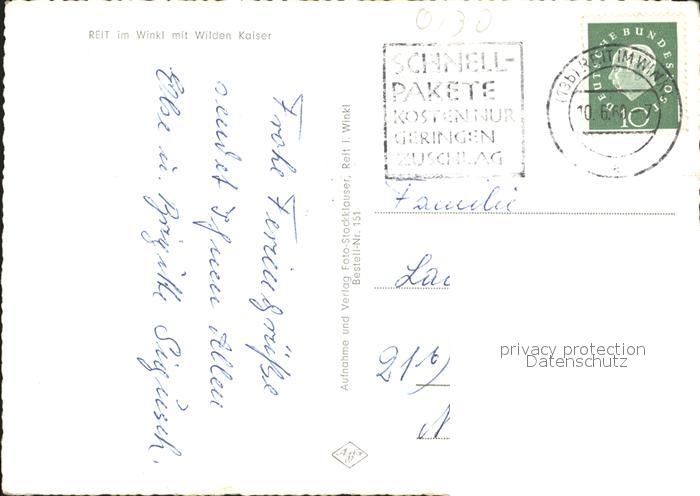 0,30
REIT im Winkl mit Wilden Kaiser
SCHNELL-
PAKETE
KOSTEN NUR
GERINGEN
ZUSCHLAG
DEUTSCHE BUNDESPOST
10
(13b) REIT IM WINKL
10. 6. 60
a
Frohe Feriengrüße
sendet Ihnen Allen
Else u. Brigitte
Aufnahme und Verlag Foto-Stockklauser, Reit i. Winkl
Bestell-Nr. 151
Familie
21b)
privacy protection
Datenschutz
Agfa